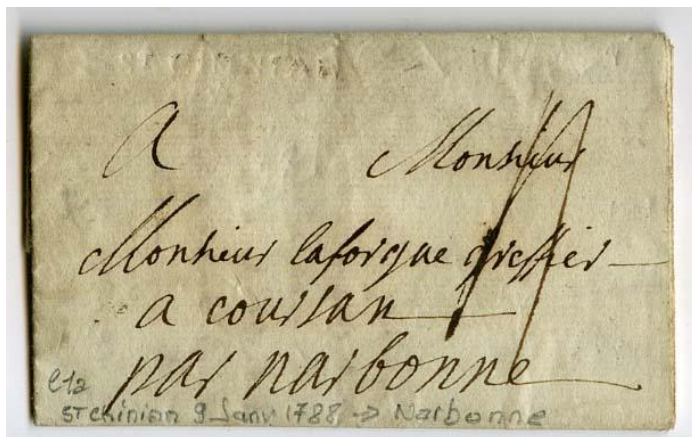 ST CHINIAN
A Monsieur
Monsieur laforgue greffier
a coursan
par narbonne
St chinian 9 Janv 1788 → Narbonne